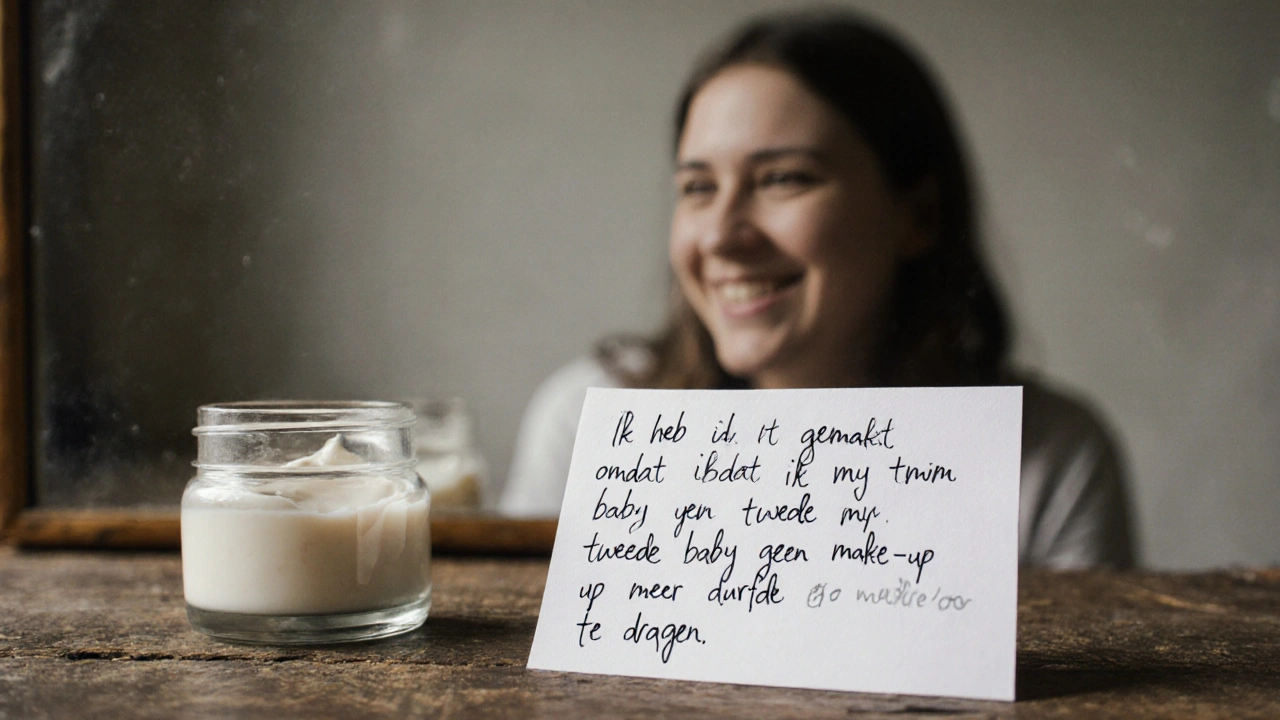 Ik heb id. it gemakt
omdat ibdat ik my tmim
baby yen twede my.
tweede baby geen make-up
up meer durfde
te dragen.